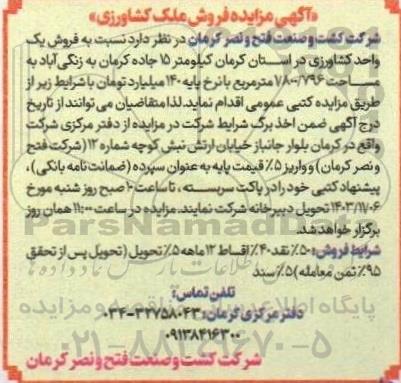 «آگهی مزایده فروش ملک کشاورزی»
شرکت کشت و صنعت فتح و نصر کرمان در نظر دارد نسبت به فروش یک
واحد کشاورزی در استان کرمان کیلومتر ۱۵ جاده کرمان به زنگی آباد به
مساحت ۱/۸۰۰/۷۹۶ مترمربع با نرخ پایه ۱۴۰ میلیارد تومان با شرایط زیر از
طریق مزایده کتبی عمومی اقدام نماید. لذا متقاضیان می توانند از تاریخ
درج آگهی ضمن اخذ برگ شرایط شرکت در مزایده از دفتر مرکزی شرکت
واقع در کرمان بلوار جانباز خیابان ارتش نبش کوچه شماره ۱۲ (شرکت فتح
و نصر کرمان) و واریز ۵٪ قیمت پایه به عنوان سپرده (ضمانت نامه بانکی)،
پیشنهاد کتبی خود را در پاکت سربسته، تا ساعت ۱۰ صبح روز شنبه مورخ
۱۴۰۳/۱۱/۰۶ تحویل دبیرخانه شرکت نمایند. مزایده در ساعت ۱۱:۰۰ همان روز
برگزار خواهد شد.
شرایط فروش: ۵۰٪ نقد ۴۰٪ اقساط ۱۲ ماهه ۵٪ تحویل (تحویل پس از تحقق
۹۵٪ ثمن معامله) ۵٪ سند
تلفن تماس:
دفتر مرکزی کرمان: ۳۲۷۵۸۰۴۳-۰۳۴
۰۹۱۳۸۴۱۶۳۰۰
شرکت کشت و صنعت فتح و نصر کرمان
ParsNamadData
پایگاه اطلاع رسانی مناقصه و مزایده